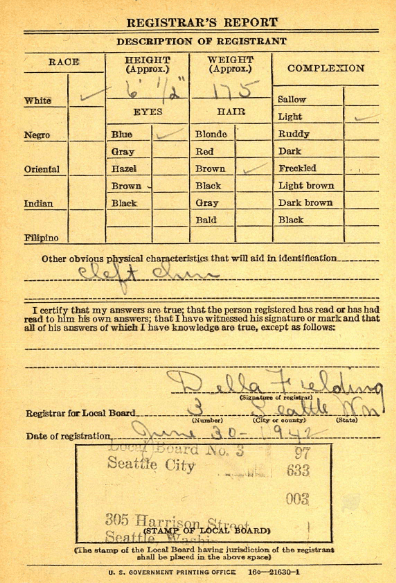 REGISTRAR'S REPORT
DESCRIPTION OF REGISTRANT
RACE
HEIGHT
(Approx.)
WEIGHT
(Approx.)
COMPLEXION
6' ½"
175
White ✓
EYES
HAIR
Sallow
Light ✓
Negro
Blue ✓
Blonde
Ruddy
Gray
Red
Dark
Oriental
Hazel
Brown ✓
Freckled
Brown
Black
Light brown
Indian
Black
Gray
Dark brown
Bald
Black
Filipino
Other obvious physical characteristics that will aid in identification
Cleft chin
I certify that my answers are true; that the person registered has read or has had
read to him his own answers; that I have witnessed his signature or mark and that
all of his answers of which I have knowledge are true, except as follows:
Della Fielding
(Signature of registrar)
Registrar for Local Board 3 Seattle Wn
(Number) (City or county) (State)
Date of registration June 30-1942
Local Board No. 3 97
Seattle City 633
003
305 Harrison Street
(STAMP OF LOCAL BOARD)
Seattle, Wash.
(The stamp of the Local Board having jurisdiction of the registrant
shall be placed in the above space)
U. S. GOVERNMENT PRINTING OFFICE 16—21630-1